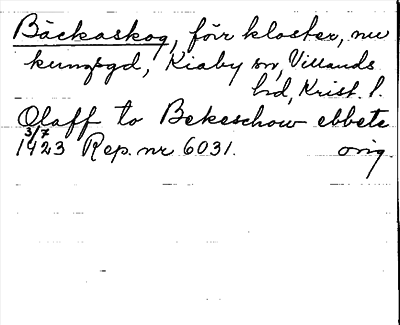 Bäckaskog, förr kloster, nu
kungsgd, Kiaby sn, Villands
hd, Krist. l.
Olaff to Bekeschow ebbete
3/7
1423 Rep. nr 6031. orig.